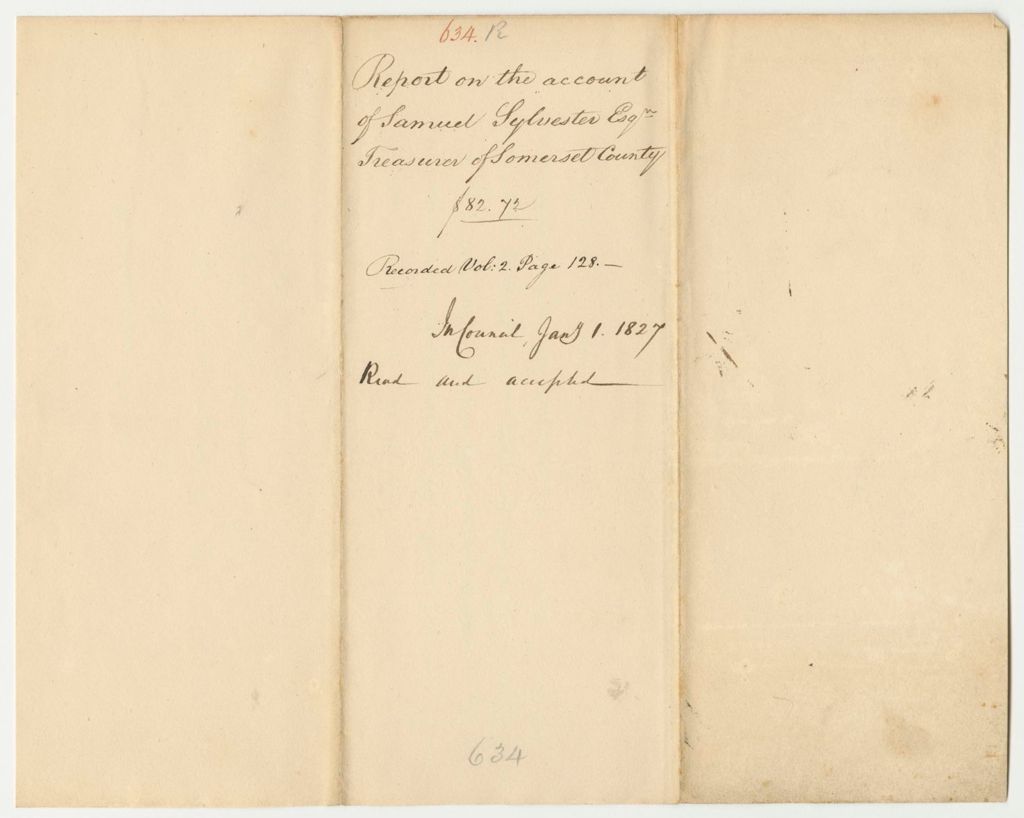 634. R
Report on the account
of Samuel Sylvester Esqr
Treasurer of Somerset County
$82.72
Recorded Vol: 2. Page 128.—
In Council, Jany 1. 1827
Read and accepted
634